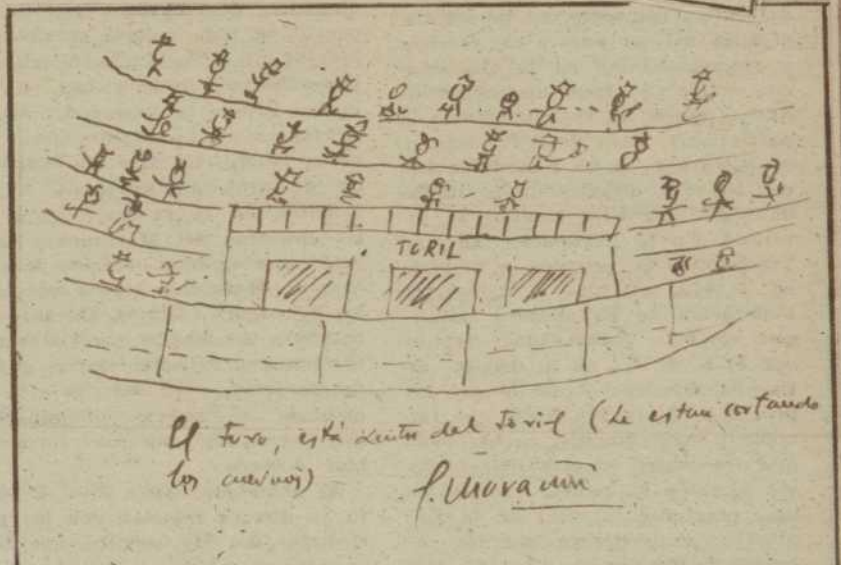 TORIL
El toro, está dentro del toril (Le estan cortando
los cuernos)